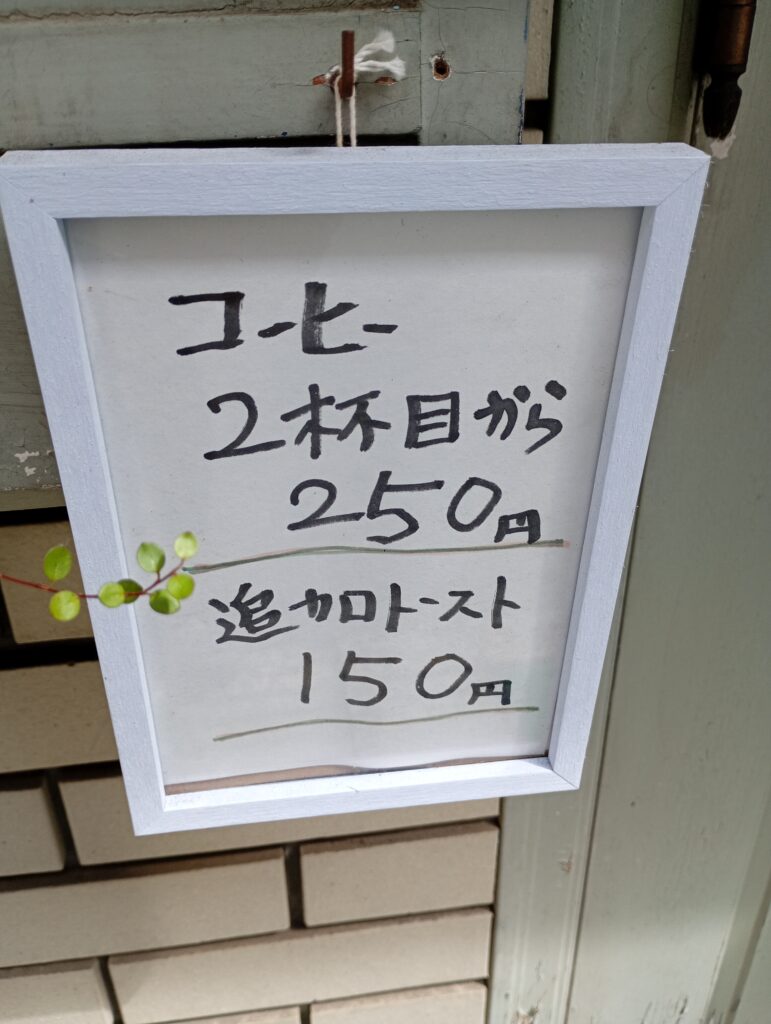 コーヒー
2杯目から
250円
追加トースト
150円